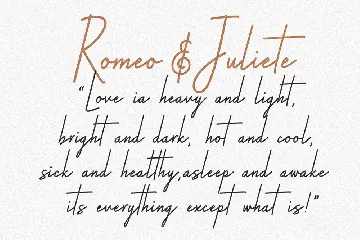 Romeo & Juliete
“Love ia heavy and light,
bright and dark, hot and cool,
sick and healthy,asleep and awake
its everything except what is!”